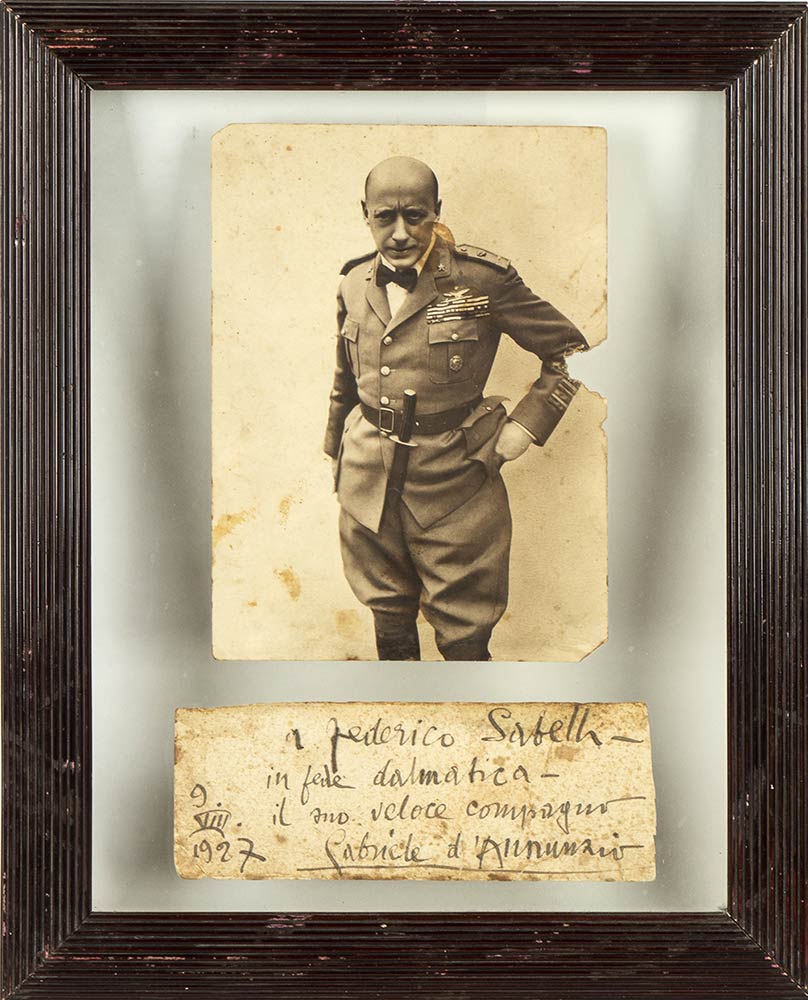 a Federico Sabelli –
in fede dalmatica –
il suo veloce compagno
9. VIII. 1927
Gabriele d'Annunzio